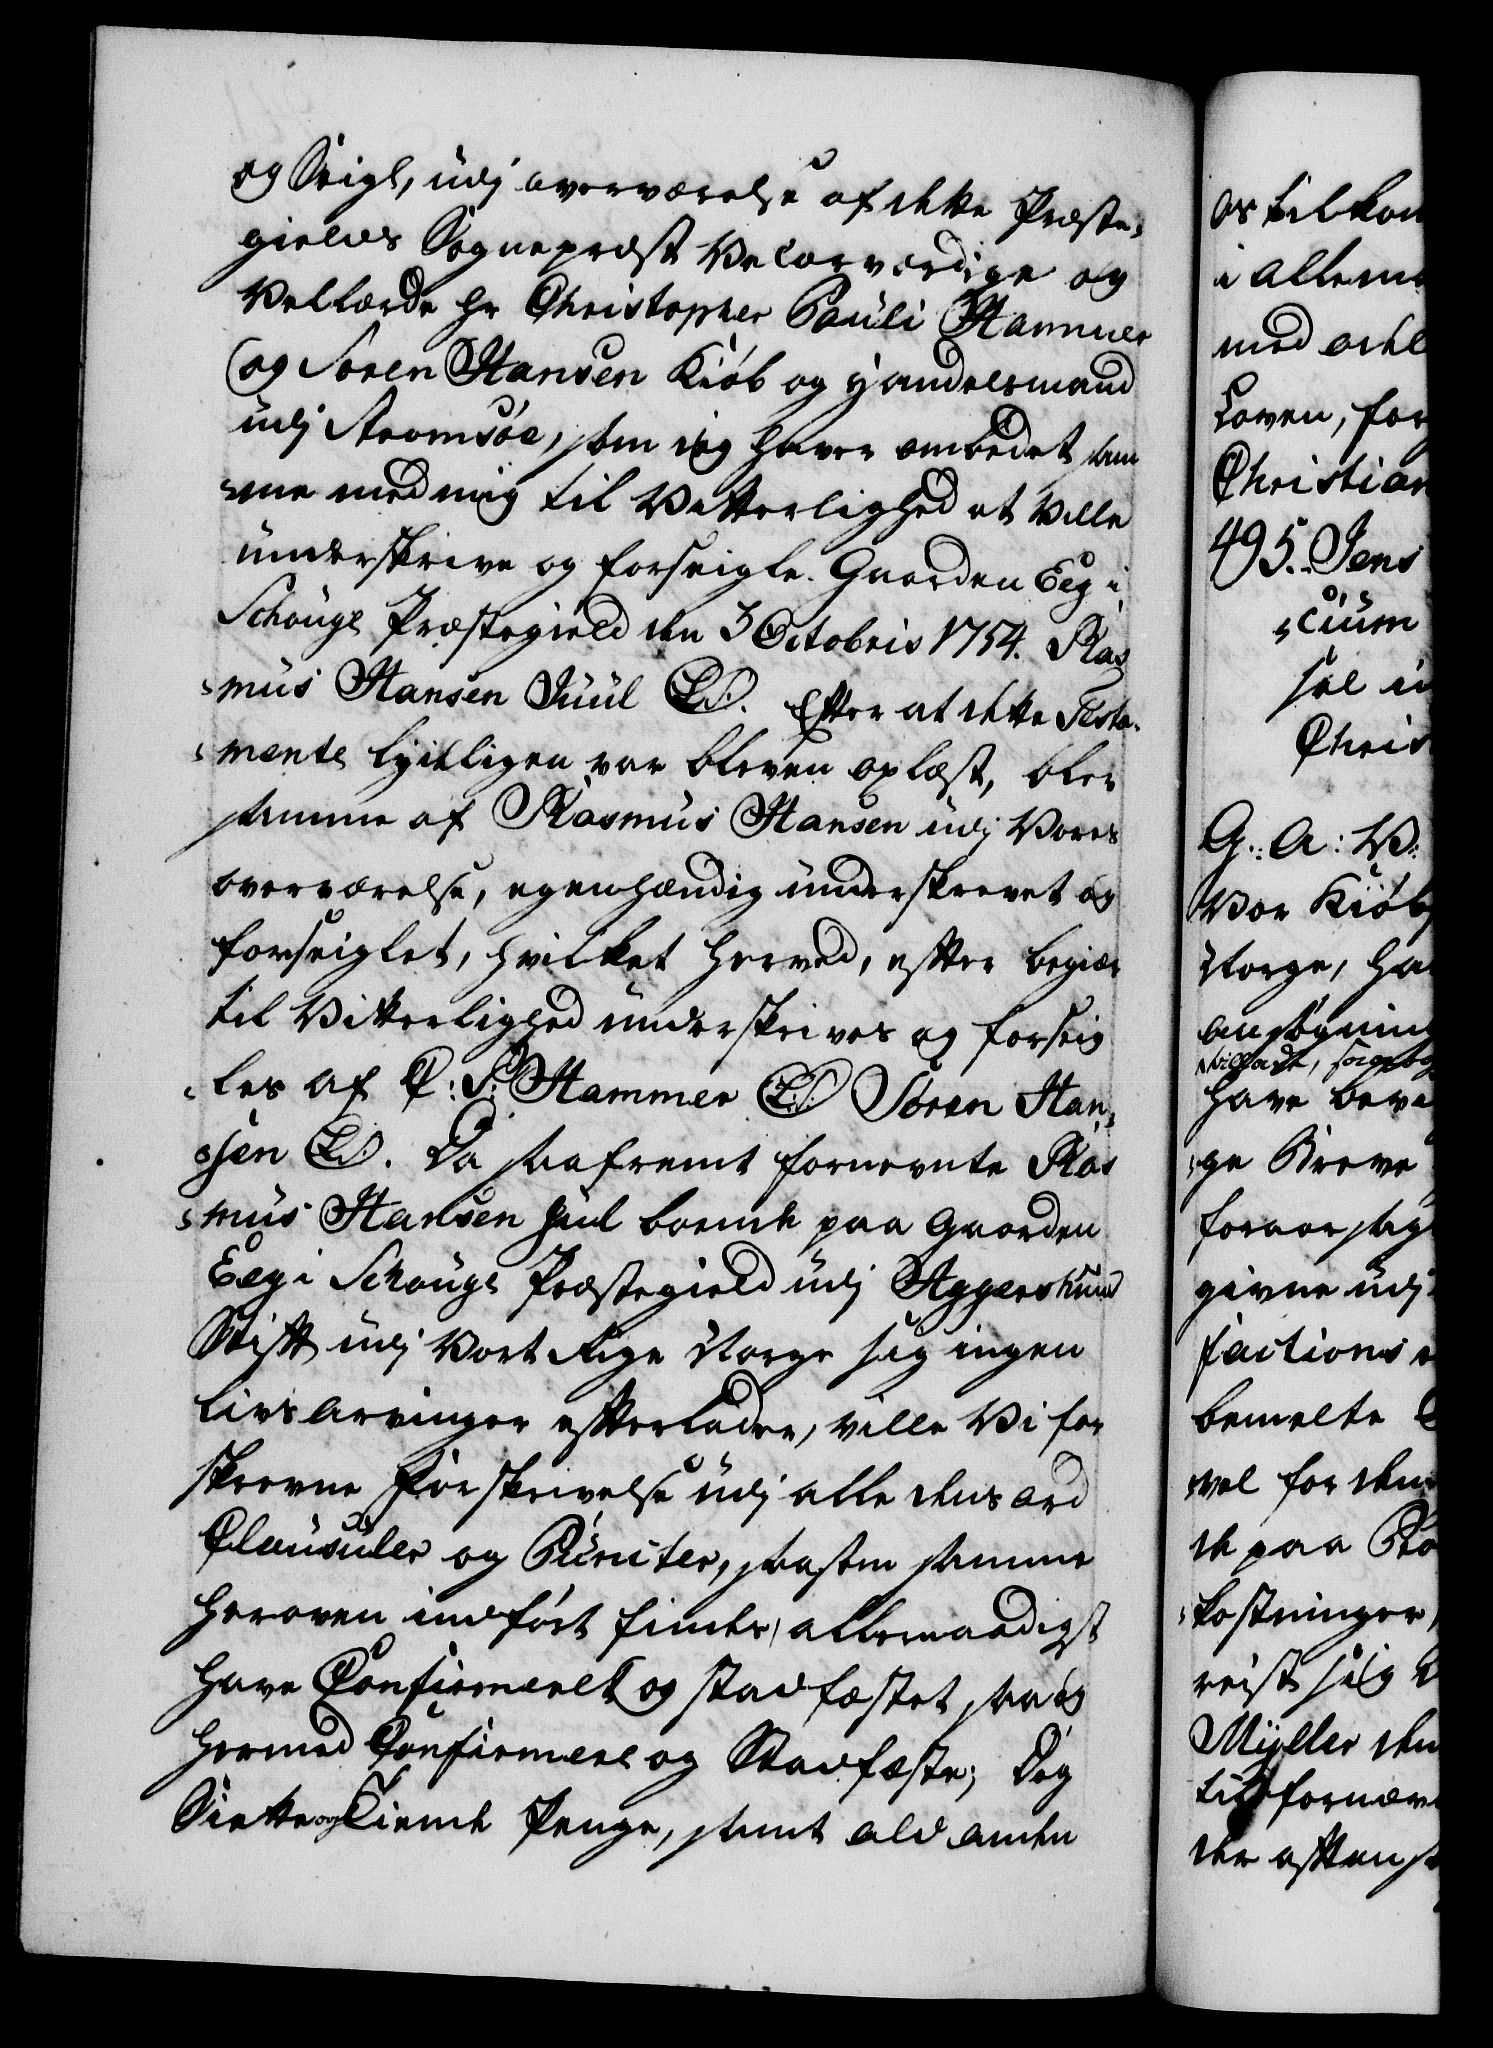 og Seigl, udj overværelse af dette Præste-
gields Sognepræst Velærværdige og
Vellærde Hr Christopher Pauli Hammer
og Søren Hansen Kiøb og Handelsmand
udj Strømsøe, som ieg haver ombedet sam
-me med mig til Vitterlighed at ville
underskrive og forseigle. Gaarden Eeg i
Schougs Præstegield den 3 Octobris 1754. Ras
-mus Hansen Juul LS. Efter at dette Testa-
-mente lydeligen var bleven oplæst, blev
samme af Rasmus Hansen udj Vores
overværelse, egenhændig underskrevet og
forseiglet, hvilket herved, efter begiær
til Vitterlighed underskrives og forseig
-les af C: P: Hammer LS Søren Han-
-sen LS. Da saafremt fornevnte Ras
-mus Hansen Juul boende paa Gaarden
Eeg i Schougs Præstegield udj Aggershuus
Stift udj Vort Rige Norge sig ingen
Livs Arvinger efterlader, ville Vi for
skrevne Forskrivelse udj alle dens Ord
Clausuler og Puncter, saasom samme
heroven indført findes, allernaadigst
have Confirmeret og stadfæstet, saa og
hermed Confirmere og Stadfæste; Dog
Siette og Tiende Penge, samt ald anden
os tilkom
i allerma
med
Loven, for
Christian
495. Jens
-cium
sel u
Chris
G: A: V:
Vor Kiøb
Norge, ha
ansøgning
have beva
-ge Breve
foraarsag
givne udj
factions
bemelte
vel for den
de paa
-kostninger,
reist sig
Müller den
til fornævn
der